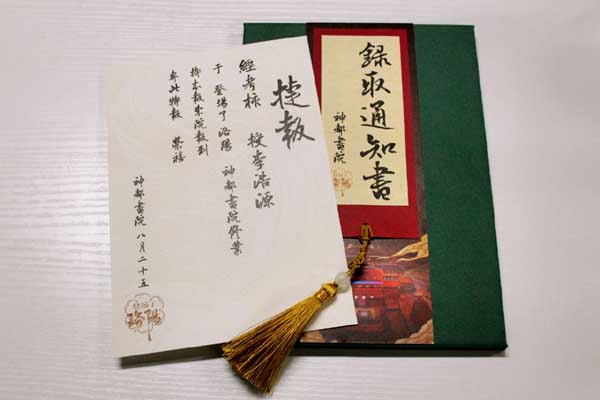 捷報
經考核 授李浩源
于 登場了洛陽 神都書院修業
持本報來院報到
奉此特報 榮禧
神都書院 八月二十五
登場了
洛陽
錄取通知書
神都書院